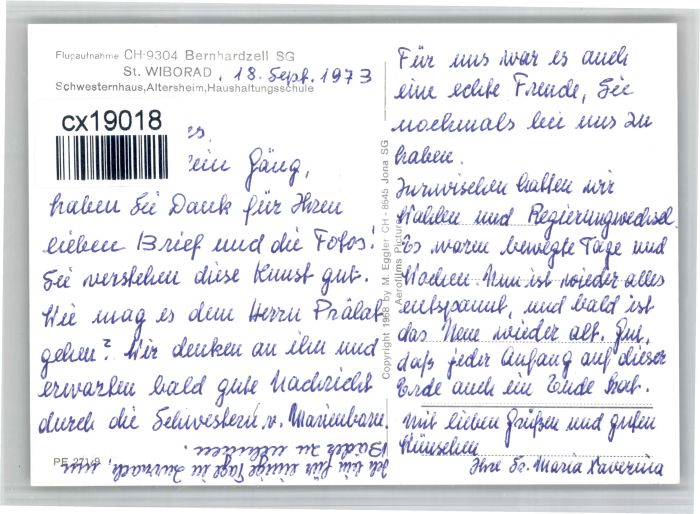 Flugaufnahme CH-9304 Bernhardzell SG
St. WIBORAD, 18. Sept. 1973
Schwesternhaus, Altersheim, Haushaltungsschule
cx19018
ein Gäng,
haben Sie Dank für Ihren
lieben Brief und die Fotos!
Sie verstehen diese Kunst gut.
Wie mag es dem Herrn Prälat
gehen? Wir denken an ihn und
erwarten bald gute Nachricht
durch die Schwestern v. Marienbann.
Ich bin für einige Tage in Zurzach, um
Bäder zu nehmen.
PE 271/9
Copyright 1968 by M. Eggler CH - 8645 Jona SG
Aerofilms Picture
Für uns war es auch
eine echte Freude, Sie
nochmals bei uns zu
haben.
Inzwischen hatten wir
Wahlen und Regierungwechsel.
Es waren bewegte Tage und
Wochen. Nun ist wieder alles
entspannt, und bald ist
das Neue wieder alt. Gut,
daß jeder Anfang auf dieser
Erde auch ein Ende hat.
Mit lieben Grüßen und guten
Wünschen
Ihre Sr. Maria Xaverina